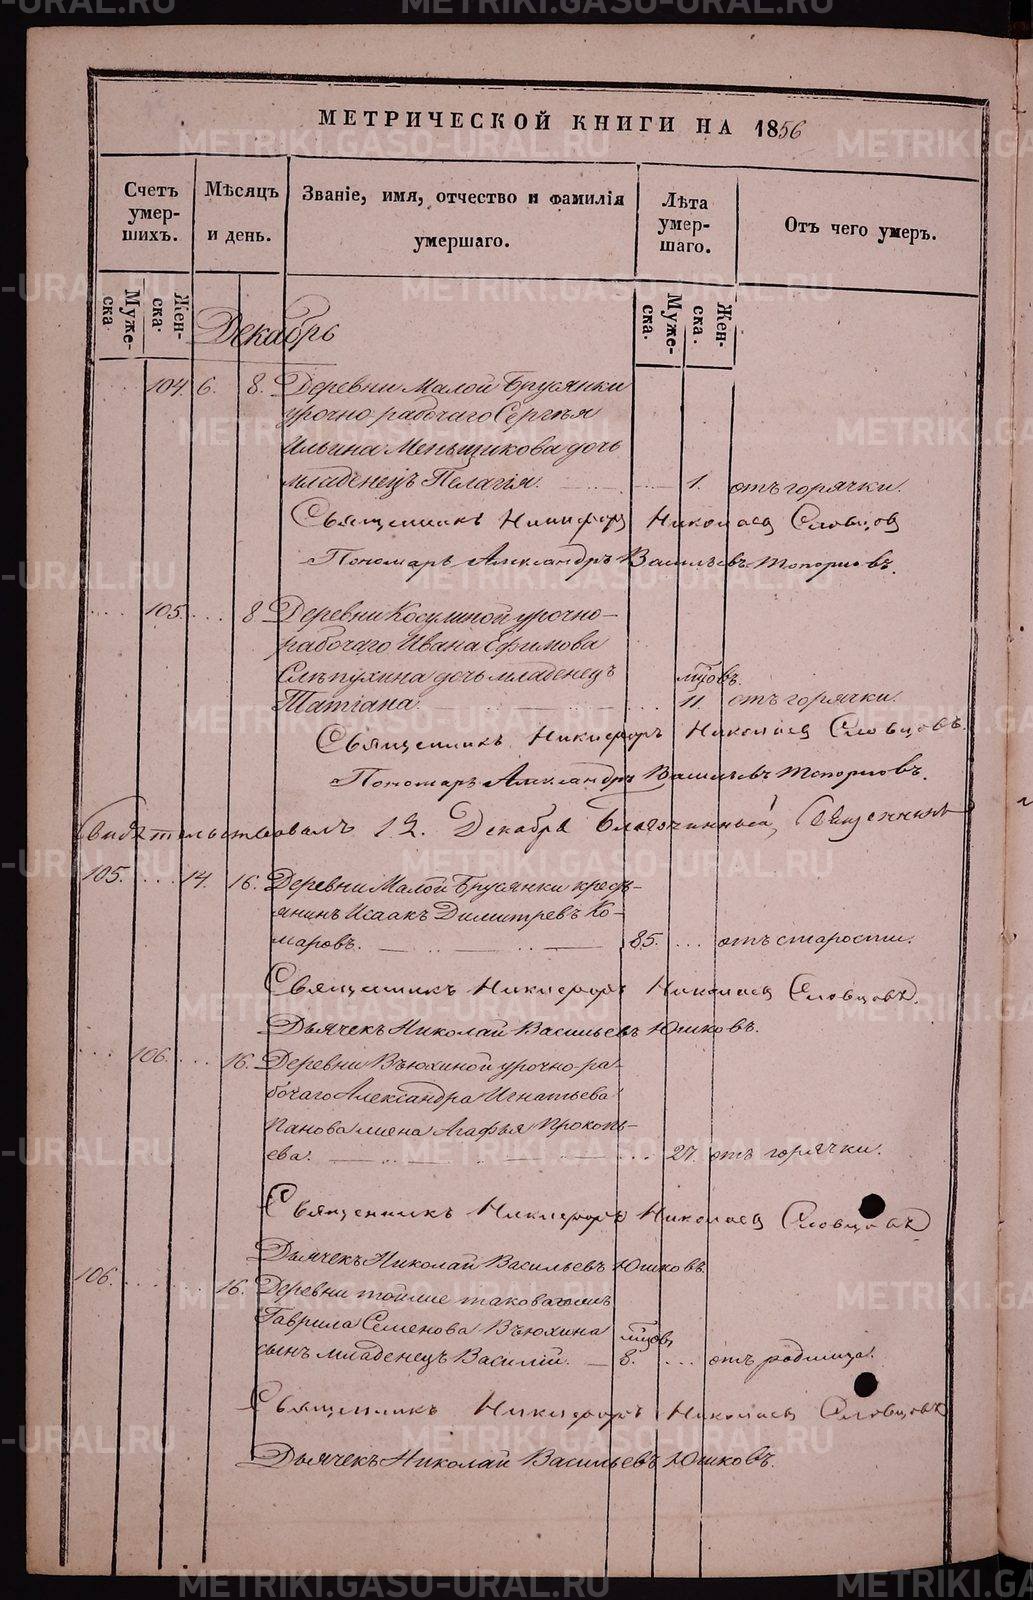 МЕТРИЧЕСКОЙ КНИГИ НА 1856
Счетъ умер-шихъ.
Мѣсяцъ и день.
Званіе, имя, отчество и фамилія умершаго.
Лѣта умер-шаго.
Отъ чего умеръ.
Муже-ска
Жен-ска.
Муже-ска.
Жен-ска.
Декабрь
104. 6. 8. Деревни Малой Брусянки
урочно рабочаго Сергѣя
Ильина Меньщикова дочь
младенецъ Пелагія. 1. отъ горячки.
Священникъ Никифоръ Николаевъ Словцовъ
Пономарь Александръ Васильевъ Топорковъ.
105. 8 Деревни Косулиной урочно-
рабочаго Ивана Ефимова
Слѣпухина дочь младенецъ мцовъ.
Татіана. 11. отъ горячки.
Священникъ Никифоръ Николаевъ Словцовъ.
Пономарь Александръ Васильевъ Топорковъ.
Свидѣтельствовалъ 12. Декабря Благочинный, Священникъ
105. 14. 16. Деревни Малой Брусянки кресть-
янинъ Исаакъ Димитревъ Ко-
маровъ. 85. отъ старости.
Священникъ Никифоръ Николаевъ Словцовъ.
Дьячекъ Николай Васильевъ Юшковъ.
106. 16. Деревни Вьюхиной урочно-ра-
бочаго Александра Игнатьева
Панова жена Агафья Прокопь-
ева. 27. отъ горячки.
Священникъ Никифоръ Николаевъ Словцовъ
Дьячекъ Николай Васильевъ Юшковъ.
106. 16. Деревни тойже таковагожъ
Гаврила Семенова Вьюхина мцовъ
сынъ младенецъ Василій. 8. отъ родимца.
Священникъ Никифоръ Николаевъ Словцовъ
Дьячекъ Николай Васильевъ Юшковъ.
METRIKI.GASO-URAL.RU